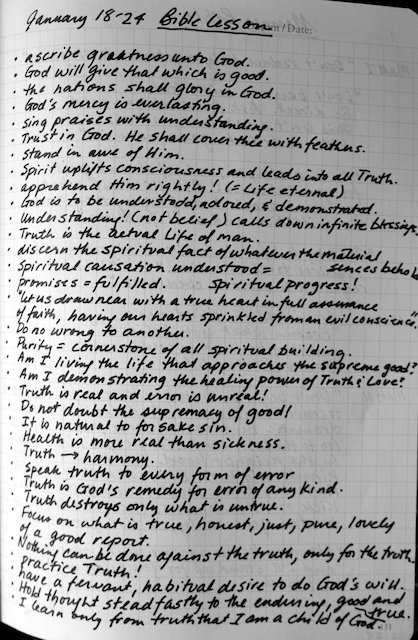 January 18-24 Bible Lesson
m/Date:
• ascribe greatness unto God.
• God will give that which is good.
• the nations shall glory in God.
• God's mercy is everlasting.
• sing praises with understanding.
• Trust in God. He shall cover thee with feathers.
• Stand in awe of Him.
• Spirit uplifts consciousness and leads into all Truth.
• apprehend Him rightly! (= Life eternal)
• God is to be understood, adored, & demonstrated.
• Understanding! (not belief) calls down infinite blessings.
• Truth is the actual Life of man.
• discern the spiritual fact of whatever the material
• Spiritual causation understood = senses behold
• promises = fulfilled. spiritual progress!
• "let us draw near with a true heart in full assurance
of faith, having our hearts sprinkled from an evil conscience."
• Do no wrong to another.
• Purity = cornerstone of all spiritual building.
• Am I living the life that approaches the supreme good?
• Am I demonstrating the healing power of Truth & Love?
• Truth is real and error is unreal!
• Do not doubt the supremacy of good!
• It is natural to forsake sin.
• Health is more real than sickness.
• Truth → harmony.
• Speak truth to every form of error
• Truth is God's remedy for error of any kind.
• Truth destroys only what is untrue.
• Focus on what is true, honest, just, pure, lovely
of a good report.
• Nothing can be done against the truth, only for the truth.
• practice Truth!
• have a fervant, habitual desire to do God's will.
• Hold thought steadfastly to the enduring, good and true.
• I learn only from truth that I am a child of God.